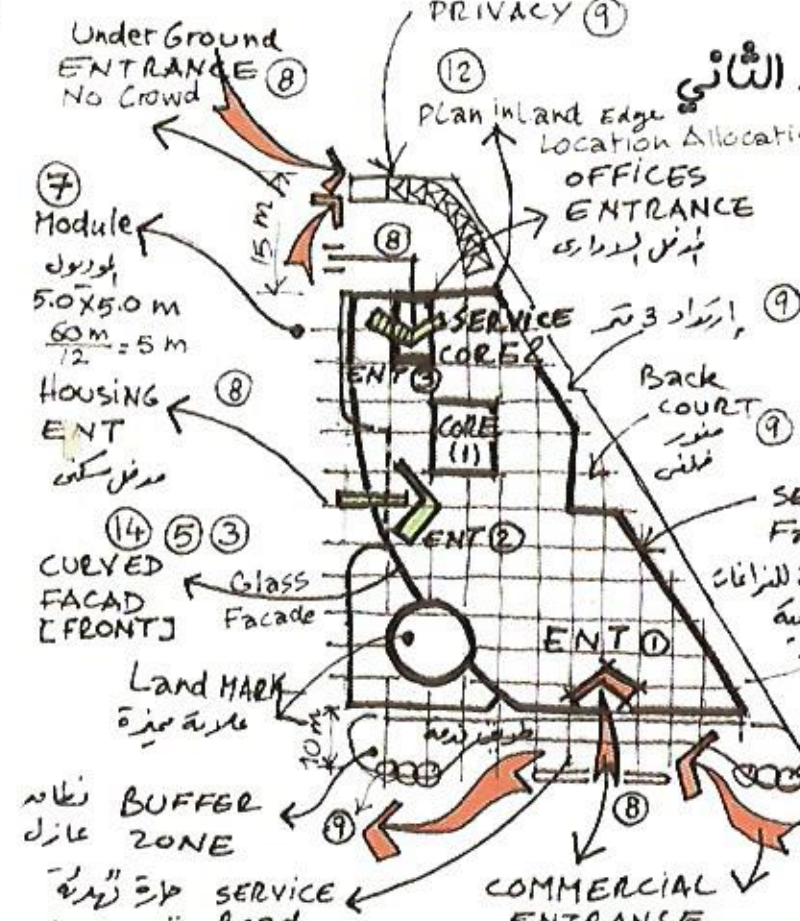 PRIVACY ⑨
Under Ground
ENTRANCE ⑧
No Crowd
⑫
الثاني
Plan inLand Edge
Location Allocati
OFFICES
ENTRANCE
المدخل الادارى
⑦
Module
الموديول
5.0 X 5.0 m
60 m / 12 = 5 m
15 m
⑧
SERVICE
CORE 2
ENT ③
إرتداد 3 متر ⑨
Back
COURT ⑨
منور
خلفى
HOUSING ⑧
ENT
مدخل سكنى
CORE
(1)
ENT ②
⑭ ⑤ ③
CURVED
FACAD
[FRONT]
Glass
Facade
SE
ENT ①
Land MARK
علامة مميزة
10 m
BUFFER
ZONE
عازل
⑨
⑧
حارة تهدئة
SERVICE
COMMERCIAL
ENTRANCE